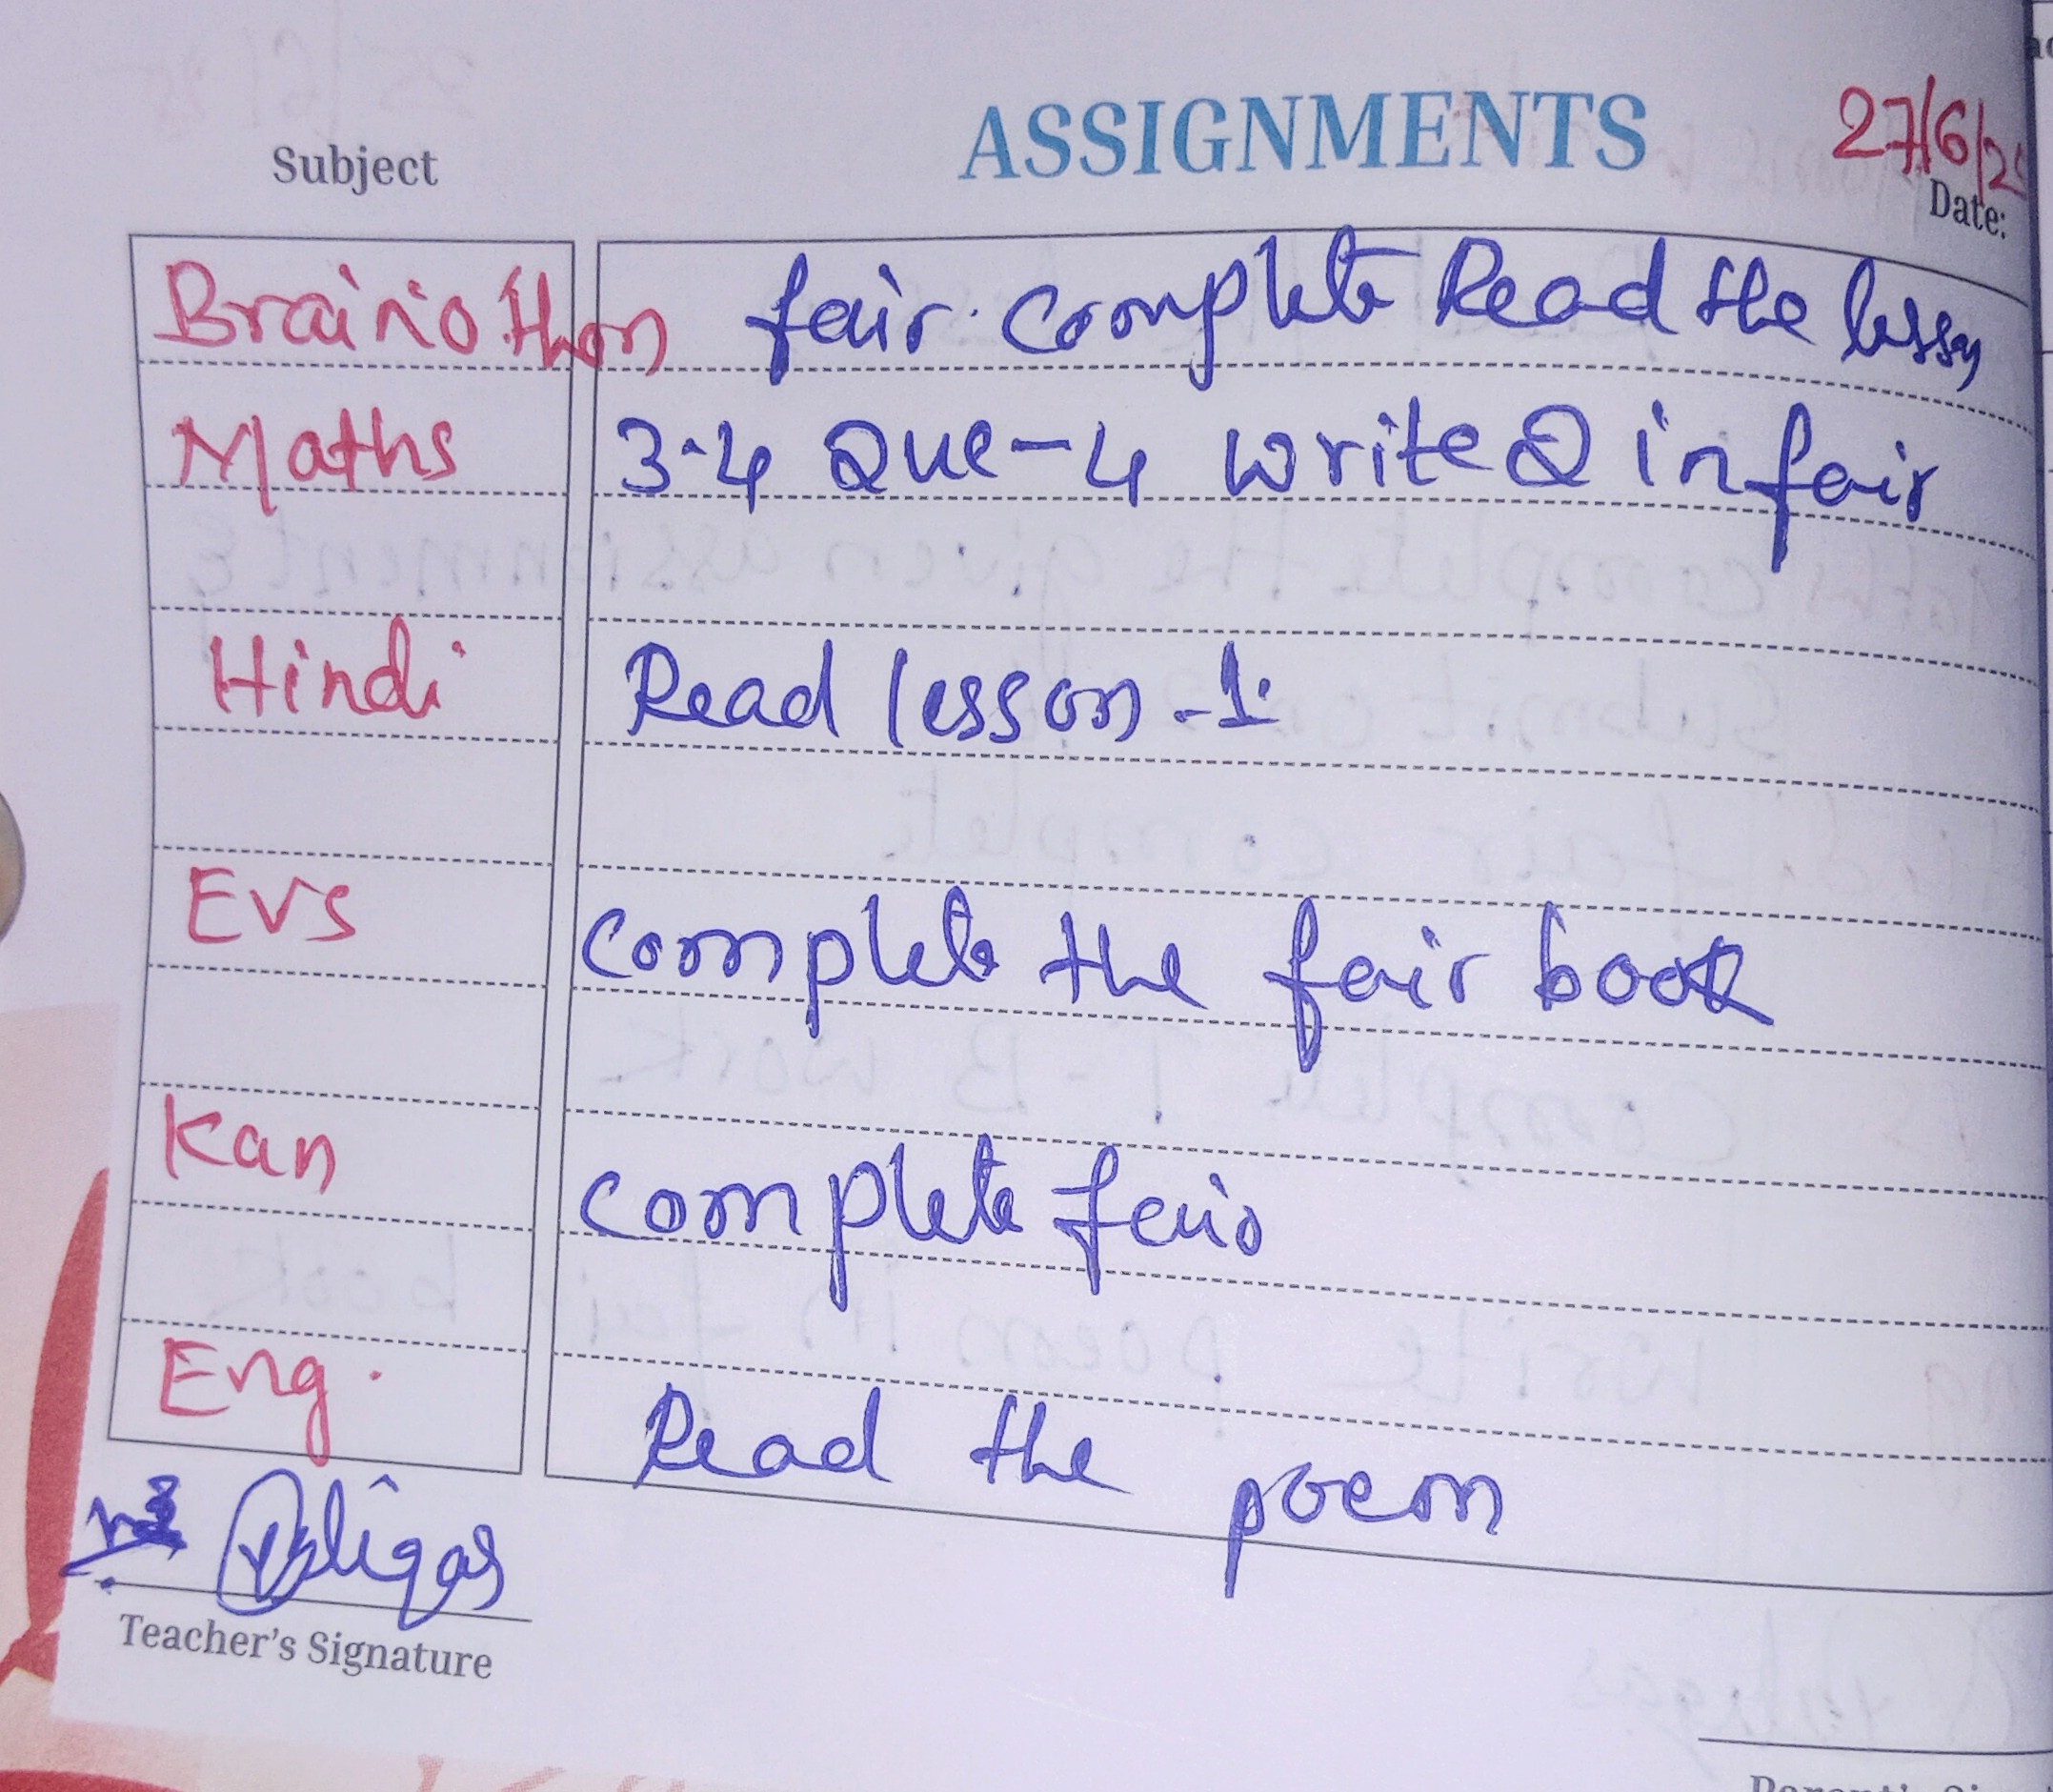 Subject ASSIGNMENTS 27/6/25
Date:
Brainothon fair. complete Read the lesson
Maths 3.4 Que-4 write Q in fair
Hindi Read lesson-1.
EVS complete the fair book
Kan complete fair
Eng. Read the poem
Teacher's Signature